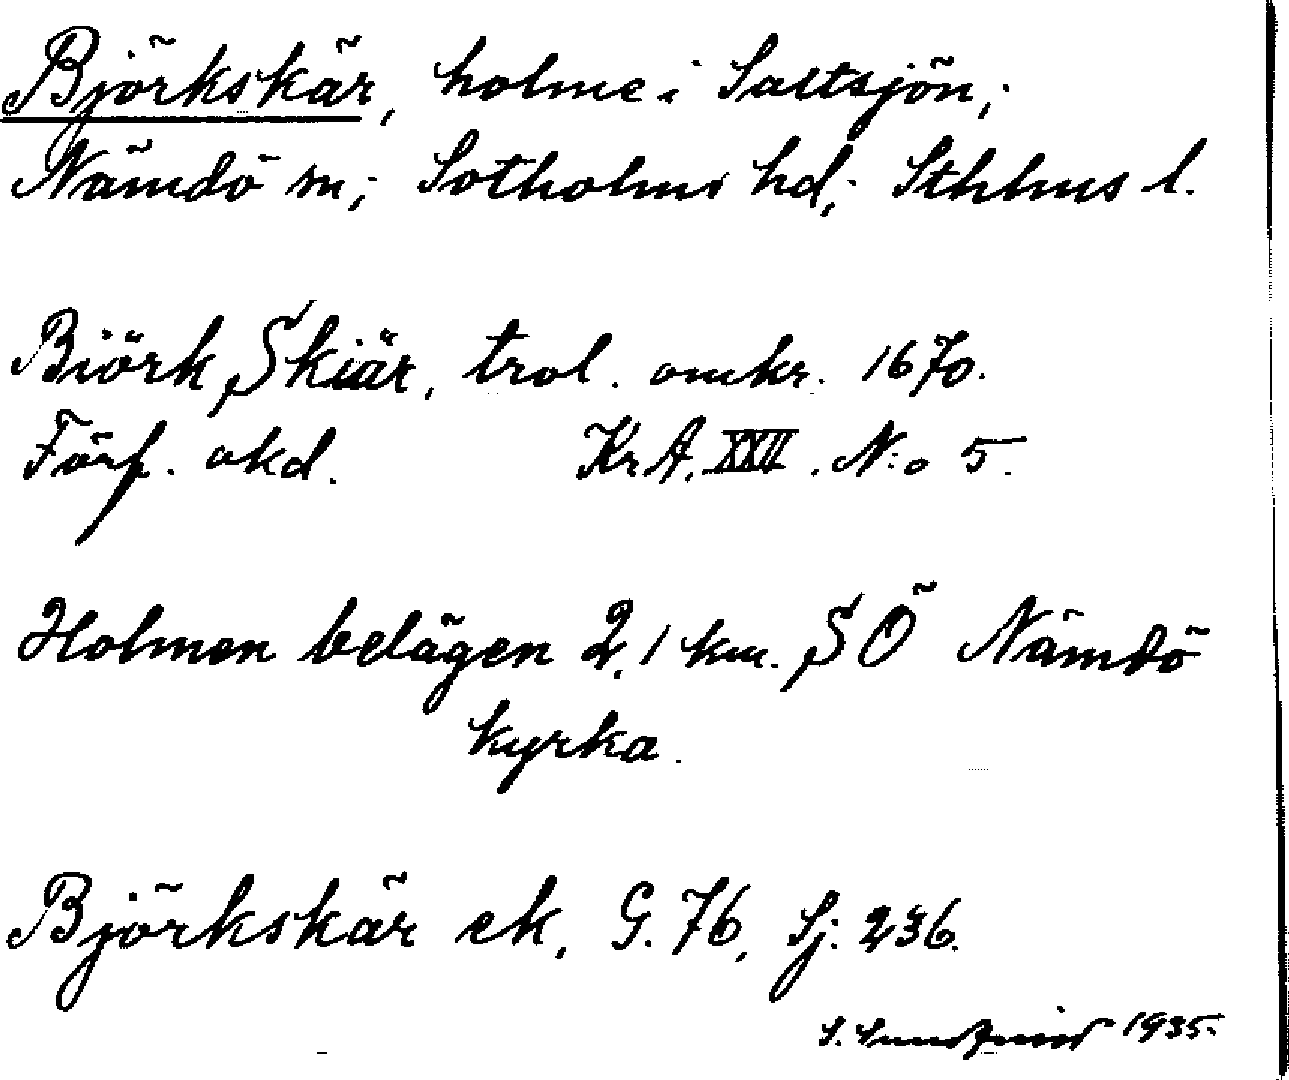 Björkskär, holme i Saltsjön;
Nämdö sn; Sotholms hd; Sthlms l.
Biörk Skiär, trol. omkr. 1670.
Förf. okd. KrA. XXII. N:o 5.
Holmen belägen 2,1 km. SÖ Nämdö
kyrka.
Björkskär ek, G. 76, Sj. 236.
S. Sundqvist 1935.